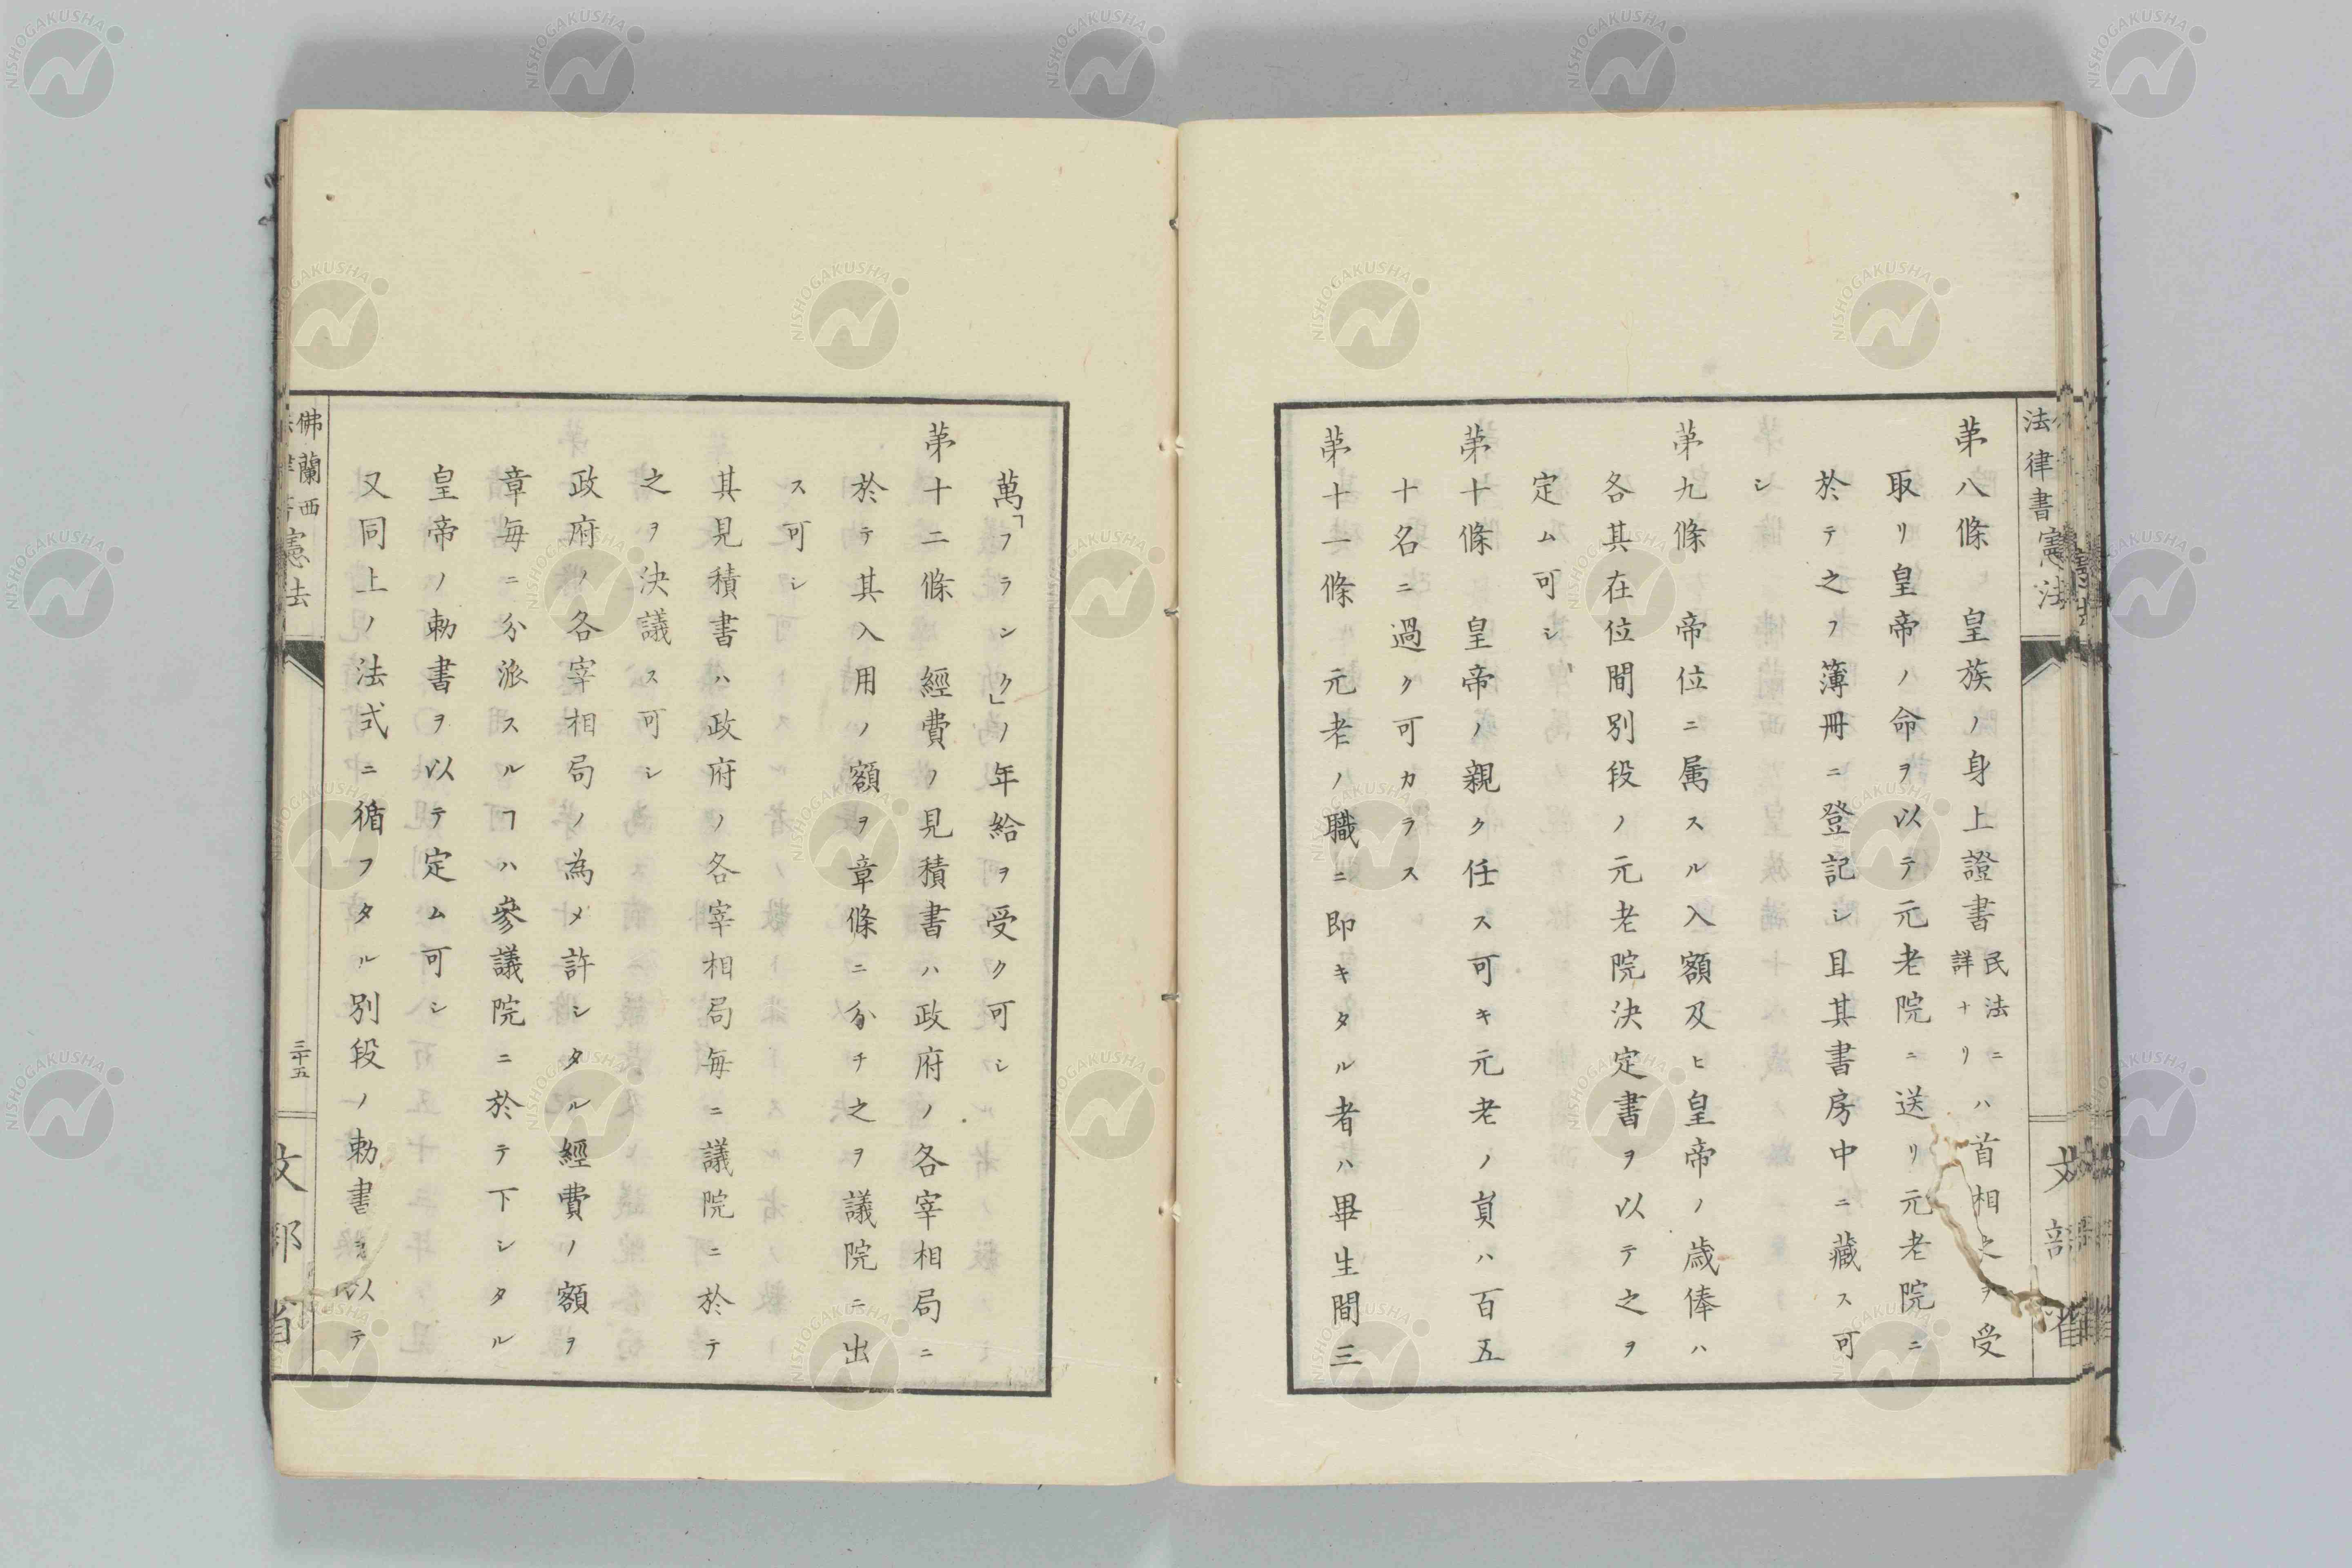 法律書憲法
第八條 皇族ノ身上證書民法ニ詳ナリハ首相之ヲ受
取リ皇帝ノ命ヲ以テ元老院ニ送リ元老院ニ
於テ之ヲ簿冊ニ登記シ且其書房中ニ藏ス可
シ
第九條 帝位ニ属スル入額及ヒ皇帝ノ歳俸ハ
各其在位間別段ノ元老院決定書ヲ以テ之ヲ
定ム可シ
第十條 皇帝ノ親ク任ス可キ元老ノ員ハ百五
十名ニ過ク可カラス
第十一條 元老ノ職ニ即キタル者ハ畢生間三
萬「フランク」ノ年給ヲ受ク可シ
第十二條 經費ノ見積書ハ政府ノ各宰相局ニ
於テ其入用ノ額ヲ章條ニ分チ之ヲ議院ニ出
ス可シ
其見積書ハ政府ノ各宰相局毎ニ議院ニ於テ
之ヲ決議ス可シ
政府ノ各宰相局ノ為メ許シタル經費ノ額ヲ
章毎ニ分派スルヿハ參議院ニ於テ下シタル
皇帝ノ勅書ヲ以テ定ム可シ
又同上ノ法式ニ循フタル別段ノ勅書ヲ以テ
佛蘭西
憲法
三十五
文部省
NISHOGAKUSHA